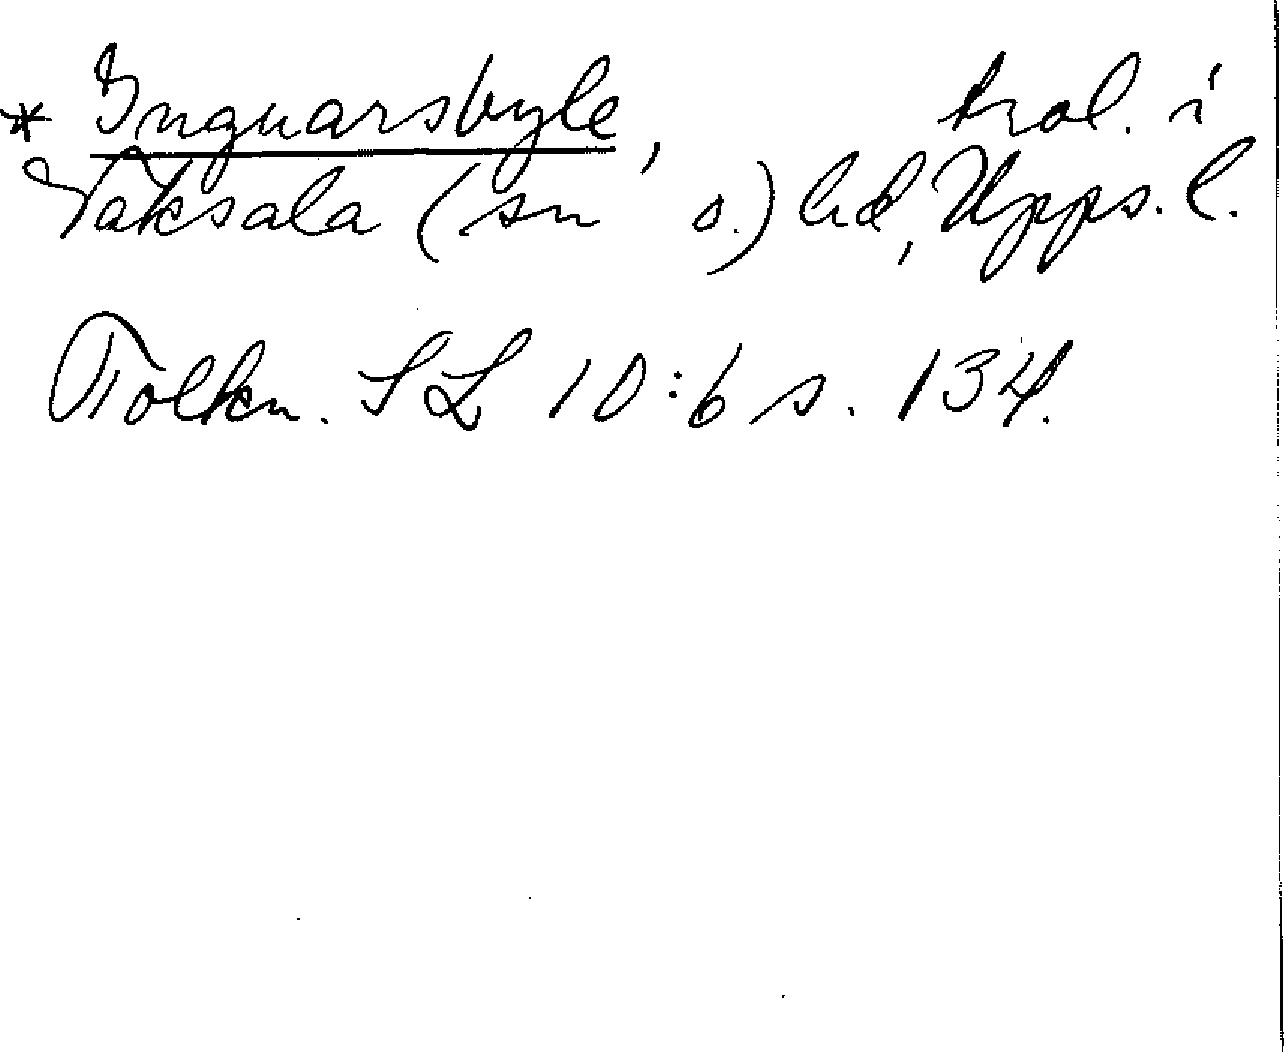 * Inguarsbyle, trol. i
Vaksala (sn o.) hd, Upps. l.
Tolkn. SL 10:6 s. 134.